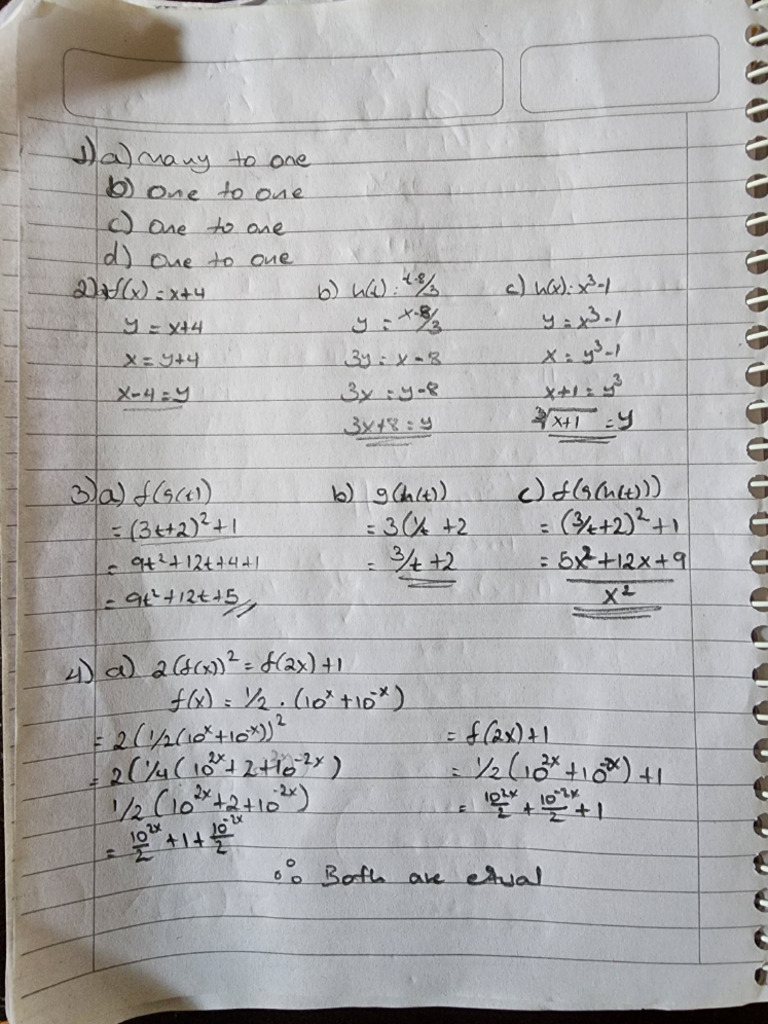 1) a) many to one
b) one to one
c) one to one
d) one to one
2) f(x) = x+4
y = x+4
x = y+4
x-4 = y
b) h(t) : t-8/3
y = x-8/3
3y = x-8
3x = y-8
3x+8 = y
c) h(x) : x³-1
y = x³-1
x = y³-1
x+1 = y³
∛x+1 = y
3) a) f(g(t))
= (3t+2)²+1
= 9t²+12t+4+1
= 9t²+12t+5
b) g(h(t))
= 3(1/t +2
= 3/t +2
c) f(g(h(t)))
= (3/t+2)²+1
= 5x²+12x+9
x²
4) a) 2(f(x))² = f(2x)+1
f(x) = 1/2 . (10ˣ+10⁻ˣ)
= 2(1/2(10ˣ+10⁻ˣ))²
= 2(1/4(10²ˣ+2+10⁻²ˣ)
1/2(10²ˣ+2+10⁻²ˣ)
= 10²ˣ/2 +1+ 10⁻²ˣ/2
= f(2x)+1
= 1/2(10²ˣ+10⁻²ˣ)+1
= 10²ˣ/2 + 10⁻²ˣ/2 +1
∴ Both are equal